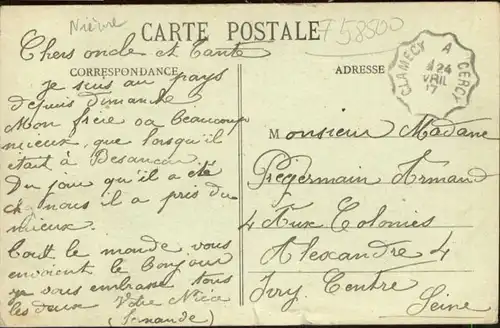 Nièvre
CARTE POSTALE
758500
Chers oncle et Tante
CORRESPONDANCE
je suis au pays
depuis dimanche
Mon frère va beaucoup
mieux, que lorsqu'il
était à Besançon
Du jour qu'il a été
ch nous il a pris du
mieux.
Tout le monde vous
envoient le bonjour
je vous embrasse tous
les deux Votre Nièce
(Fernande)
ADRESSE
CLAMECY A CERCY
24
AVRIL
17
Monsieur Madame
Prégermain Armand
4 Aux Colonies
Alexandre 4
Ivry Centre
Seine